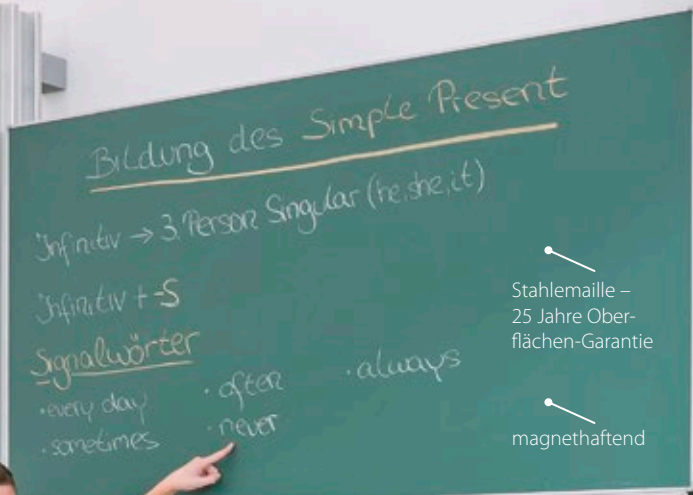 Bildung des Simple Present
Infinitiv → 3. Person Singular (he, she, it)
Infinitiv + -s
Signalwörter
• every day
• sometimes
• often
• never
• always
Stahlemaille –
25 Jahre Ober-
flächen-Garantie
magnethaftend